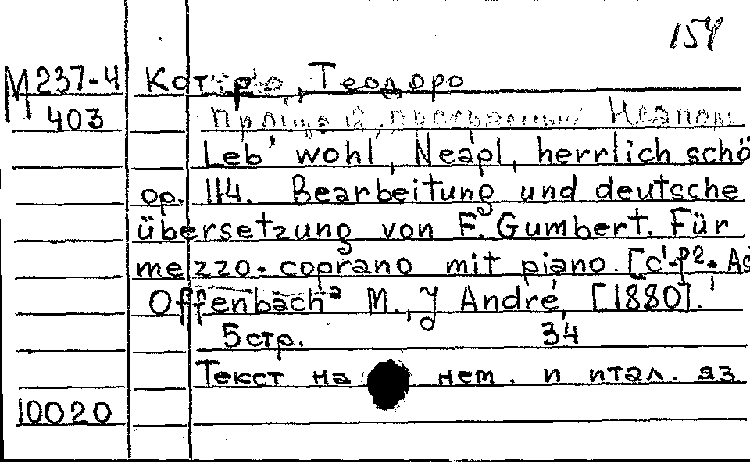 154
M 237-4 Коттро, Теодоро
403 Прощай, прекрасный Неапол
Leb' wohl, Neapl, herrlich schö
op. 114. Bearbeitung und deutsche
übersetzung von F. Gumbert. Für
mezzo-coprano mit piano. [c¹-f². Ad
Offenbach a M., J André, [1880].
5 стр. 34
Текст на нем. и итал. яз.
10020